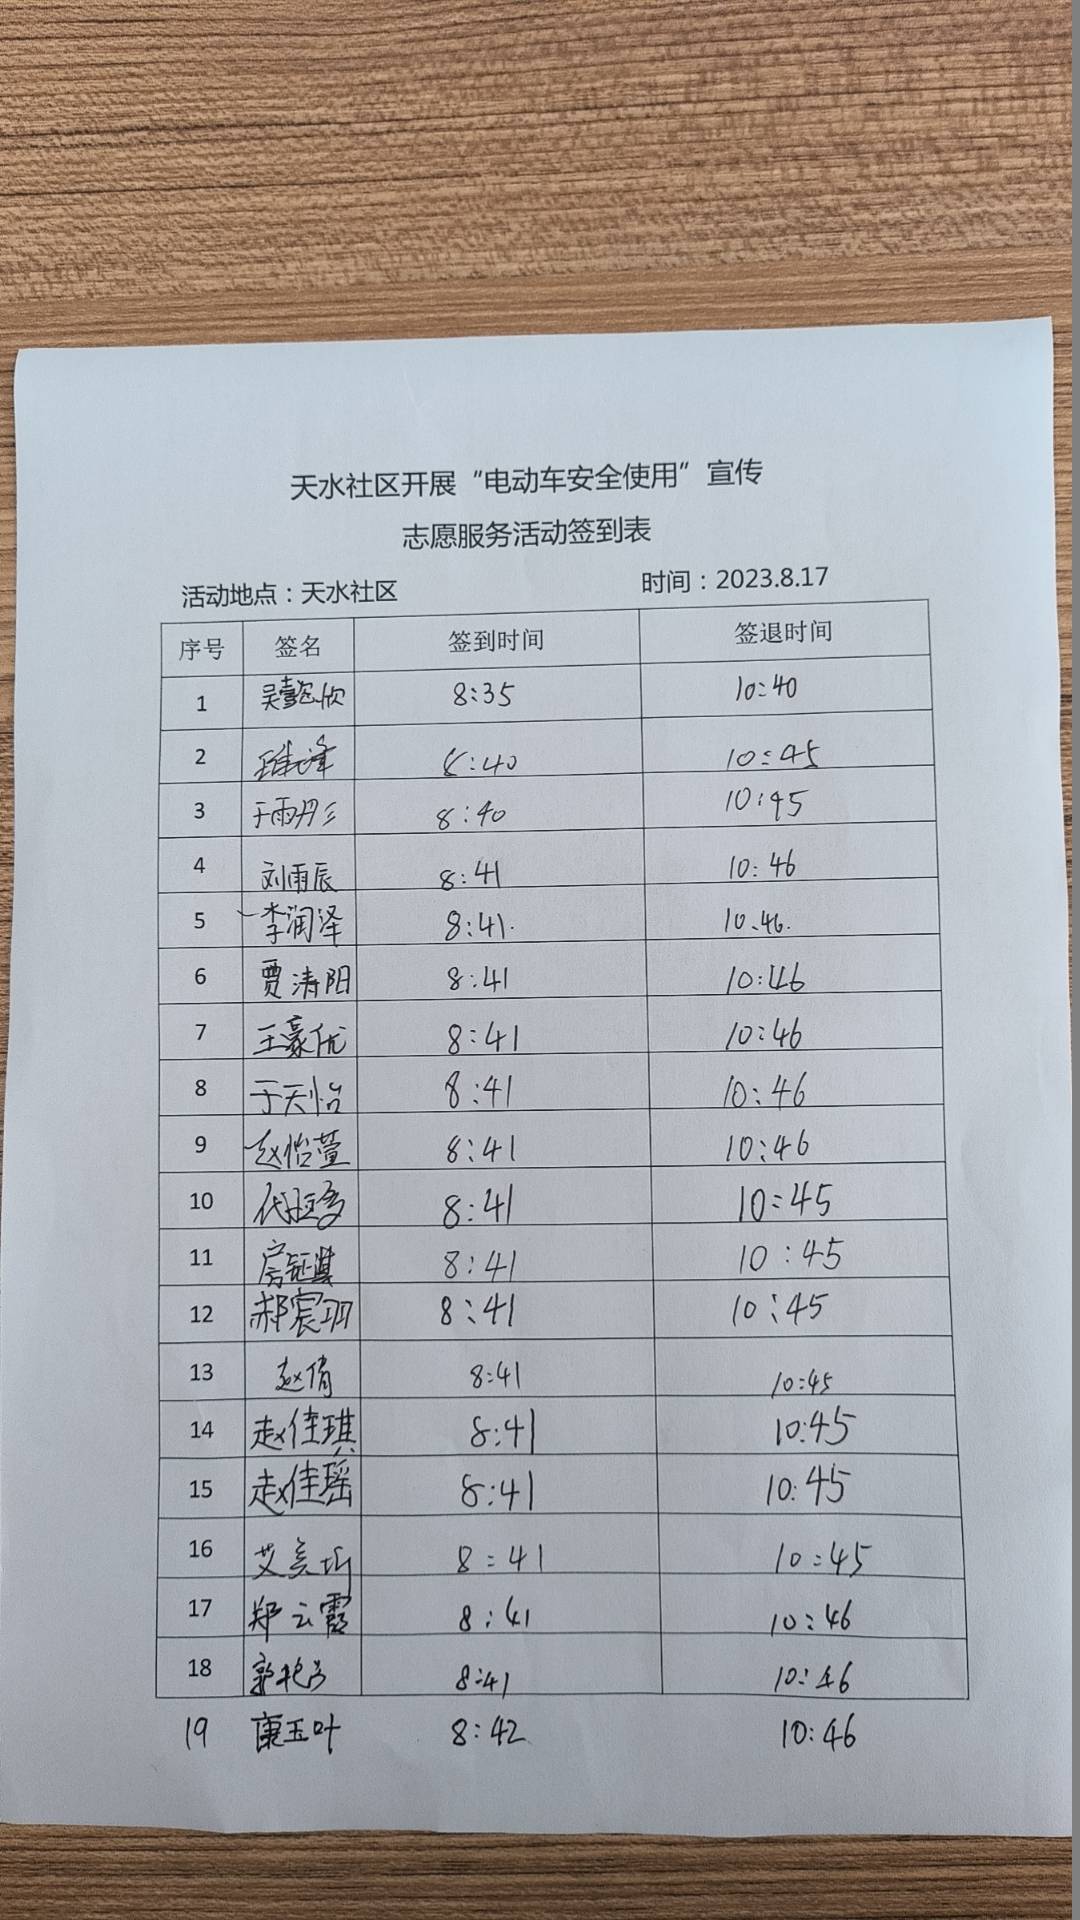 天水社区开展“电动车安全使用”宣传
志愿服务活动签到表
活动地点：天水社区 时间：2023.8.17
序号 签名 签到时间 签退时间
1 吴懿欣 8:35 10:40
2 8:40 10:45
3 于雨彤 8:40 10:45
4 刘雨辰 8:41 10:46
5 李润泽 8:41. 10.46.
6 贾清阳 8:41 10:46
7 王豪优 8:41 10:46
8 于天怡 8:41 10:46
9 赵怡萱 8:41 10:46
10 8:41 10:45
11 房钰淇 8:41 10:45
12 郝宸羽 8:41 10:45
13 赵倩 8:41 10:45
14 赵佳琪 8:41 10:45
15 赵佳瑶 8:41 10:45
16 8:41 10:45
17 郑云霞 8:41 10:46
18 8:41 10:46
19 康玉叶 8:42 10:46